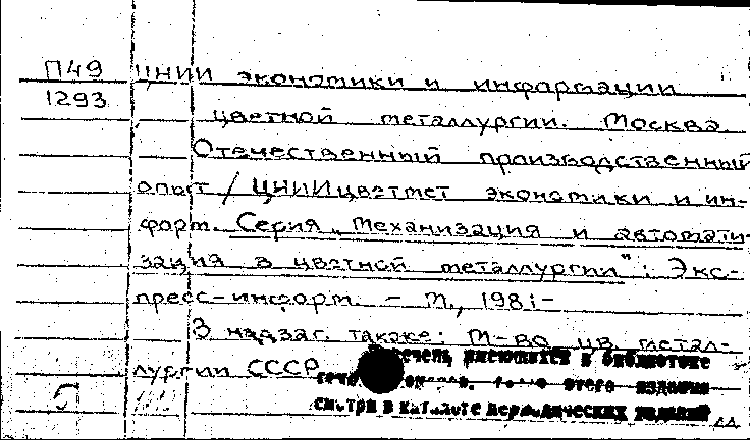 П49 ЦНИИ экономики и информации
1293
цветной металлургии. Москва.
Отечественный производственный
опыт / ЦНИИцветмет экономики и ин-
форм. Серия „Механизация и автомати-
зация в цветной металлургии": Экс-
пресс-информ. - М., 1981-
В надзаг. также: М-во цв. метал-
лургии СССР
имеющихся в библиотеке
этого издания
смотри в каталоге периодических изданий